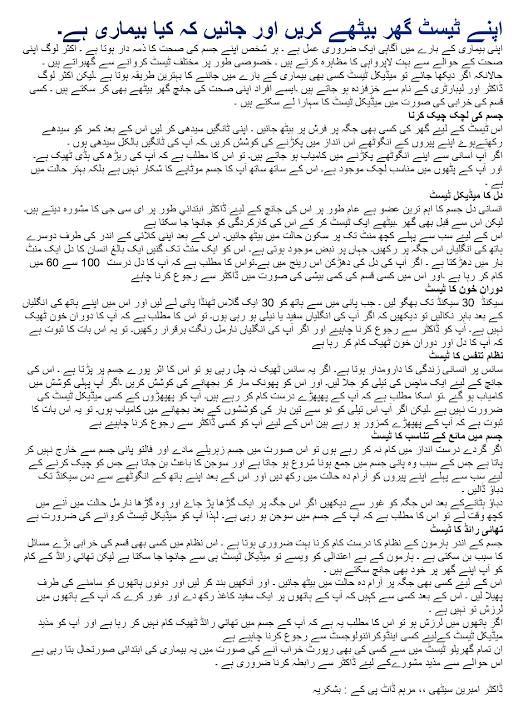 اپنے ٹیسٹ گھر بیٹھے کریں اور جانیں کہ کیا بیماری ہے۔
اپنی بیماری کے بارے میں آگاہی ایک ضروری عمل ہے ۔ ہر شخص اپنے جسم کی صحت کا ذمہ دار ہوتا ہے ۔ اکثر لوگ اپنی
صحت کے حوالے سے بہت لاپرواہی کا مظاہرہ کرتے ہیں ۔ خصوصی طور پر مختلف ٹیسٹ کروانے سے گھبراتے ہیں ۔
حالانکہ اگر دیکھا جائے تو میڈیکل ٹیسٹ کسی بھی بیماری کے بارے میں جاننے کا بہترین طریقہ ہوتا ہے ۔لیکن اکثر لوگ
ڈاکٹر اور لیبارٹری کے نام سے خزفزدہ ہو جاتے ہیں ۔ایسے افراد اپنی صحت کی جانچ گھر بیٹھے بھی کر سکتے ہیں ۔ کسی
قسم کی خرابی کی صورت میں میڈیکل ٹیسٹ کا سہارا لے سکتے ہیں ۔
جسم کی لچک چیک کرنا
اس ٹیسٹ کے لیے گھر کی کسی بھی جگہ پر فرش پر بیٹھ جائیں ۔ اپنی ٹانگیں سیدھی کر لیں اس کے بعد کمر کو سیدھے
رکھتےہوۓ اپنے پیروں کے انگوٹھے اس انداز میں پکڑنے کی کوشش کریں ۔کہ آپ کی ٹانگیں بالکل سیدھی ہوں ۔
اگر آپ آسانی سے اپنے انگوٹھے پکڑنے میں کامیاب ہو جاتے ہیں۔ تو اس کا مطلب ہے کہ آپ کی ریڑھ کی ہڈی ٹھیک ہے۔
اور آپ کے پٹھوں میں مناسب لچک موجود ہے۔ اس کے ساتھ ساتھ آپ کا جسم موٹاپے کا شکار نہیں ہے بلکہ بہتر حالت میں
ہے ۔
دل کا میڈیکل ٹیسٹ
انسانی دل جسم کا اہم ترین عضو ہے عام طور پر اس کی جانچ کے لیے ڈاکٹر ابتدائی طور پر ای سی جی کا مشورہ دیتے ہیں۔
لیکن اس سے قبل بھی گھر بیٹھے ایک ٹیسٹ کر کے اس کی کارکردگی کو جانچا جا سکتا ہے
اس کے لیے سب سے پہلے کچھ منٹ تک پر سکون حالت میں بیٹھ جائیں۔ اس کے بعد اپنی کلائی کے اندر کی طرف دوسرے
ہاتھ کی انگلیاں اس جگہ پر رکھیں۔ جہاں پر نبض موجود ہوتی ہے۔ اس کو ایک منٹ تک گنیں ایک بالغ انسان کا دل ایک منٹ
میں 60 سے 100 بار میں دھڑکتا ہے ۔ اگر آپ کی دل کی دھڑکن اس رینج میں ہے۔تواس کا مطلب ہے کہ آپ کا دل درست
کام کر رہا ہے ۔اور اس میں کسی قسم کی کمی بیشی کی صورت میں ڈاکٹر سے رجوع کرنا چاہیے
دوران خون کا ٹیسٹ
سیکنڈ 30 سیکنڈ تک بھگو لیں ۔ جب پانی میں سے ہاتھ کو 30 ایک گلاس ٹھنڈا پانی لے لیں اور اس میں اپنے ہاتھ کی انگلیاں
کے بعد باہر نکالیں تو دیکھیں کہ اگر آپ کی انگلیاں سفید یا نیلی ہو رہی ہوں۔ تو اس کا مطلب ہے کہ آپ کا دوران خون ٹھیک
نہیں ہے۔ آپ کو ڈاکٹر سے رجوع کرنا چاہیے اور اگر آپ کی انگلیاں نارمل رنگت برقرار رکھیں۔ تو یہ اس بات کا ثبوت ہے
کہ آپ کا دل اور دوران خون ٹھیک کام کر رہا ہے
نظام تنفس کا ٹیسٹ
سانس پر انسانی زندگی کا دارومدار ہوتا ہے۔ اگر یہ سانس ٹھیک نہ چل رہی ہو تو اس کا اثر پورے جسم پر پڑتا ہے ۔ اس کی
جانچ کے لیے ایک ماچس کی تیلی کو جلا لیں۔ اور اس کو پھونک مار کر بجھانے کی کوشش کریں ۔اگر آپ پہلی کوشش میں
کامیاب ہو گئے ۔تو اسکا مطلب ہے کہ آپ کے پھیپھڑے درست کام کر رہے ہیں۔ آپ کو پھیپھڑوں کے کسی میڈیکل ٹیسٹ کی
ضرورت نہیں ہے ۔لیکن اگر آپ اس تیلی کو دو سے تین بار کی کوششوں کے بعد بجھانے میں کامیاب ہوں۔ تو یہ اس بات کا
ثبوت ہے کہ آپ کے پھیپھڑے کمزور ہو رہے ہیں اس کے لیے آپ کو کسی ڈاکٹر سے رجوع کرنا چاہیے ہے
جسم میں مائع کے تناسب کا ٹیسٹ
اگر گردے درست انداز میں کام نہ کر رہے ہوں تو اس صورت میں جسم زہریلے مادے اور فالتو پانی جسم سے خارج نہیں کر
پاتا ہے جس کے سبب وہ پانی جسم میں جمع ہونا شروع ہو جاتا ہے اور سوجن کا باعث بن جاتا ہے جس کو چیک کرنے کے
لیے سب سے پہلے اپنے پیروں کو آرام دہ حالت میں رکھ دیں اور اس کے بعد اپنے ہاتھ کے انگوٹھے سے دس سیکنڈ تک
دباؤ ڈالیں ۔
دباؤ ہٹانےکے بعد اس جگہ کو غور سے دیکھیں اگر اس جگہ پر ایک گڑھا پڑ جاۓ اور وہ گڑھا نارمل حالت میں آنے میں
کچھ وقت لے تو اس کا مطلب ہے کہ آپ کے جسم میں سوجن ہو رہی ہے۔ لہذا آپ کو میڈیکل ٹیسٹ کروانے کی ضرورت ہے
تھائی رائڈ کا ٹیسٹ
جسم کے اندر ہارمون کے نظام کا درست کام کرنا بہت ضروری ہوتا ہے ۔ اس نظام میں کسی بھی قسم کی خرابی بڑے مسائل
کا سبب بن سکتی ہے ۔ ہارمون کے بے اعتدالی کو ویسے تو میڈیکل ٹیسٹ ہی سے جانچا جا سکتا ہے لیکن تھائي رائڈ کے کام
کو آپ اپنے گھر پر خود بھی جانچ سکتے ہیں ۔
اس کے لیے کسی بھی جگہ پر آرام دہ حالت میں بیٹھ جائیں ۔ اور آنکھیں بند کر لیں اور دونوں ہاتھوں کو سامنے کی طرف
پھیلا لیں ۔ اس کے بعد کسی سے کہیں کہ آپ کے ہاتھوں پر ایک سفید کاغذ رکھ دے اور غور کرے کہ آپ کے ہاتھوں میں
لرزش تو نہیں ہے ۔
اگر ہاتھوں میں لرزش ہو تو اس کا مطلب یہ ہے کہ آپ کے جسم میں تھائي رائڈ ٹھیک کام نہیں کر رہا ہے اور آپ کو مذید
میڈیکل ٹیسٹ کےلیے کسی اینڈوکرائنولوجسٹ سے رجوع کرنا چاہیے ہے
ان تمام گھریلو ٹیسٹ میں سے کسی کی بھی رپورٹ خراب آنے کی صورت میں یہ بیماری کی ابتدائی صورتحال بتا رہی ہے
اس حوالے سے مذید مشورےکے لیے ڈاکٹر سے رابطہ کرنا ضروری ہے ۔
ڈاکٹر امبرین سیٹھی ،، مریم ڈاٹ پی کے : بشکریہ